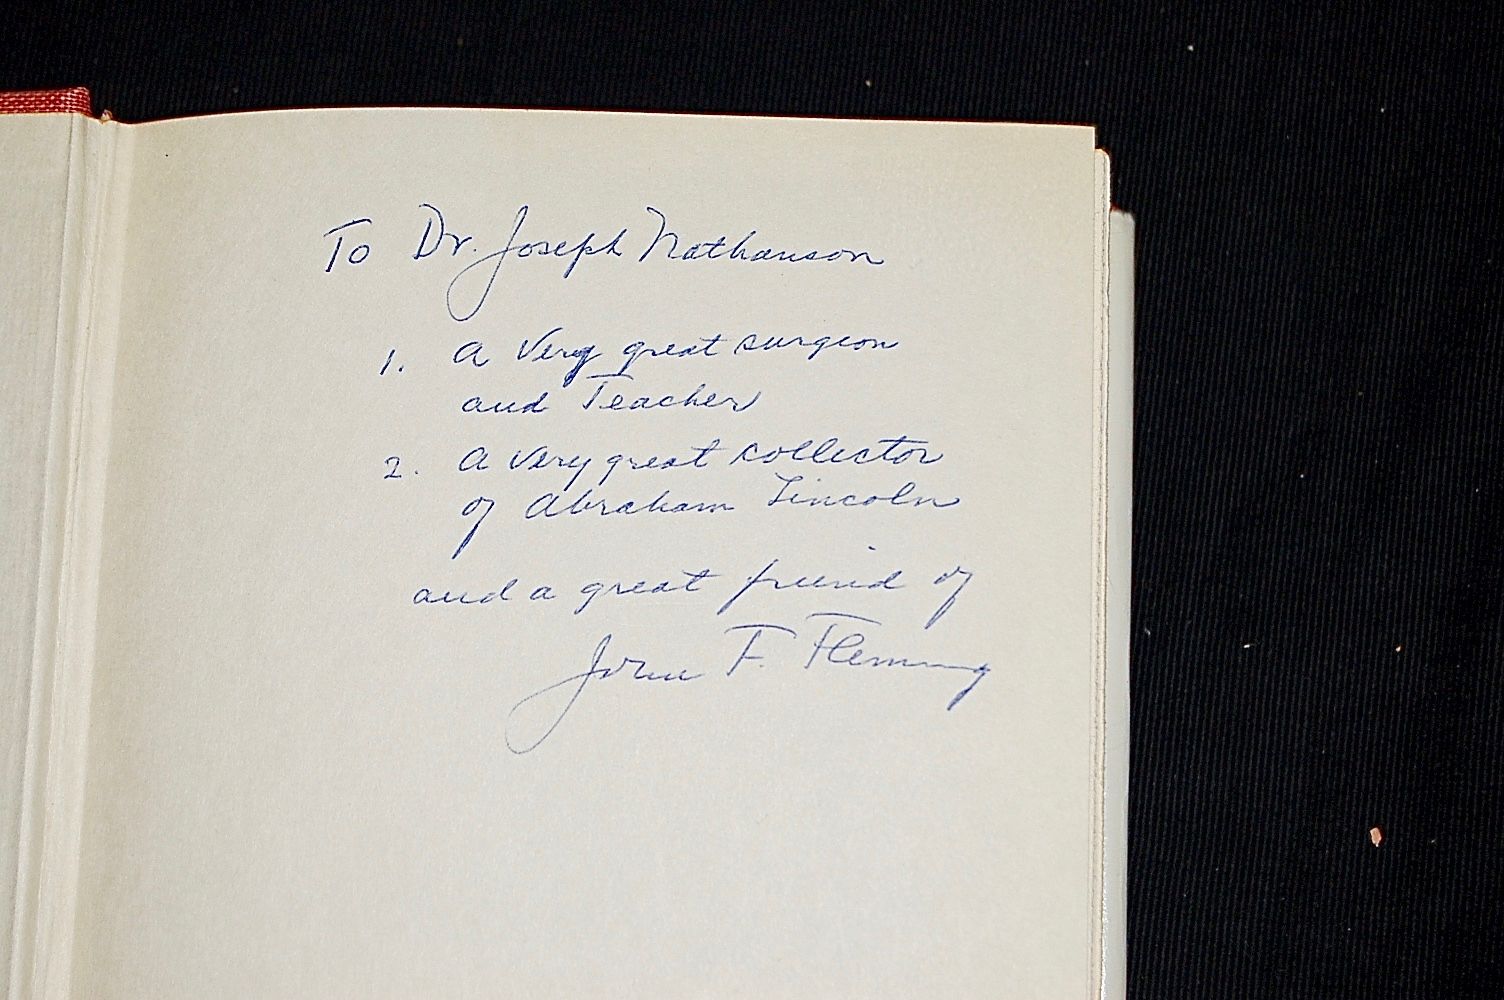 To Dr. Joseph Nathanson
1. A very great surgeon
and Teacher
2. A very great collector
of Abraham Lincoln
and a great friend of
John F. Fleming